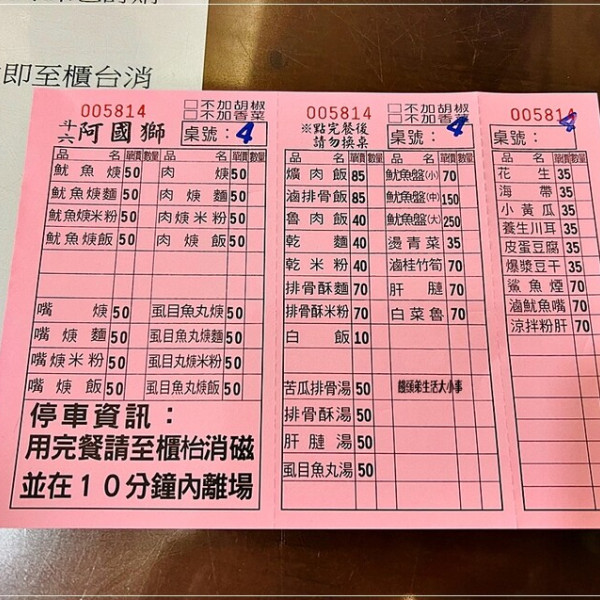 即至櫃台消
005814
□不加胡椒
□不加香菜
斗六 阿國獅
桌號：4
品 名 單價 數量 品 名 單價 數量
魷魚焿 50 肉焿 50
魷魚焿麵 50 肉焿麵 50
魷魚焿米粉 50 肉焿米粉 50
魷魚焿飯 50 肉焿飯 50
嘴焿 50 虱目魚丸焿 50
嘴焿麵 50 虱目魚丸焿麵 50
嘴焿米粉 50 虱目丸焿米粉 50
嘴焿飯 50 虱目魚丸焿飯 50
停車資訊：
用完餐請至櫃枱消磁
並在10分鐘內離場
005814
□不加胡椒
□不加香菜
※點完餐後
請勿換桌
桌號：4
品 名 單價 數量 品 名 單價 數量
爌肉飯 85 魷魚盤(小) 70
滷排骨飯 85 魷魚盤(中) 150
魯肉飯 40 魷魚盤(大) 250
乾麵 40 燙青菜 35
乾米粉 40 滷桂竹筍 70
排骨酥麵 70 肝腱 70
排骨酥米粉 70 白菜魯 70
白飯 10
苦瓜排骨湯 50
饅頭弟生活大小事
排骨酥湯 50
肝腱湯 50
虱目魚丸湯 50
005814
4
品 名 單價 數量
花生 35
海帶 35
小黃瓜 35
養生川耳 35
皮蛋豆腐 35
爆漿豆干 35
鯊魚煙 70
滷魷魚嘴 70
涼拌粉肝 70